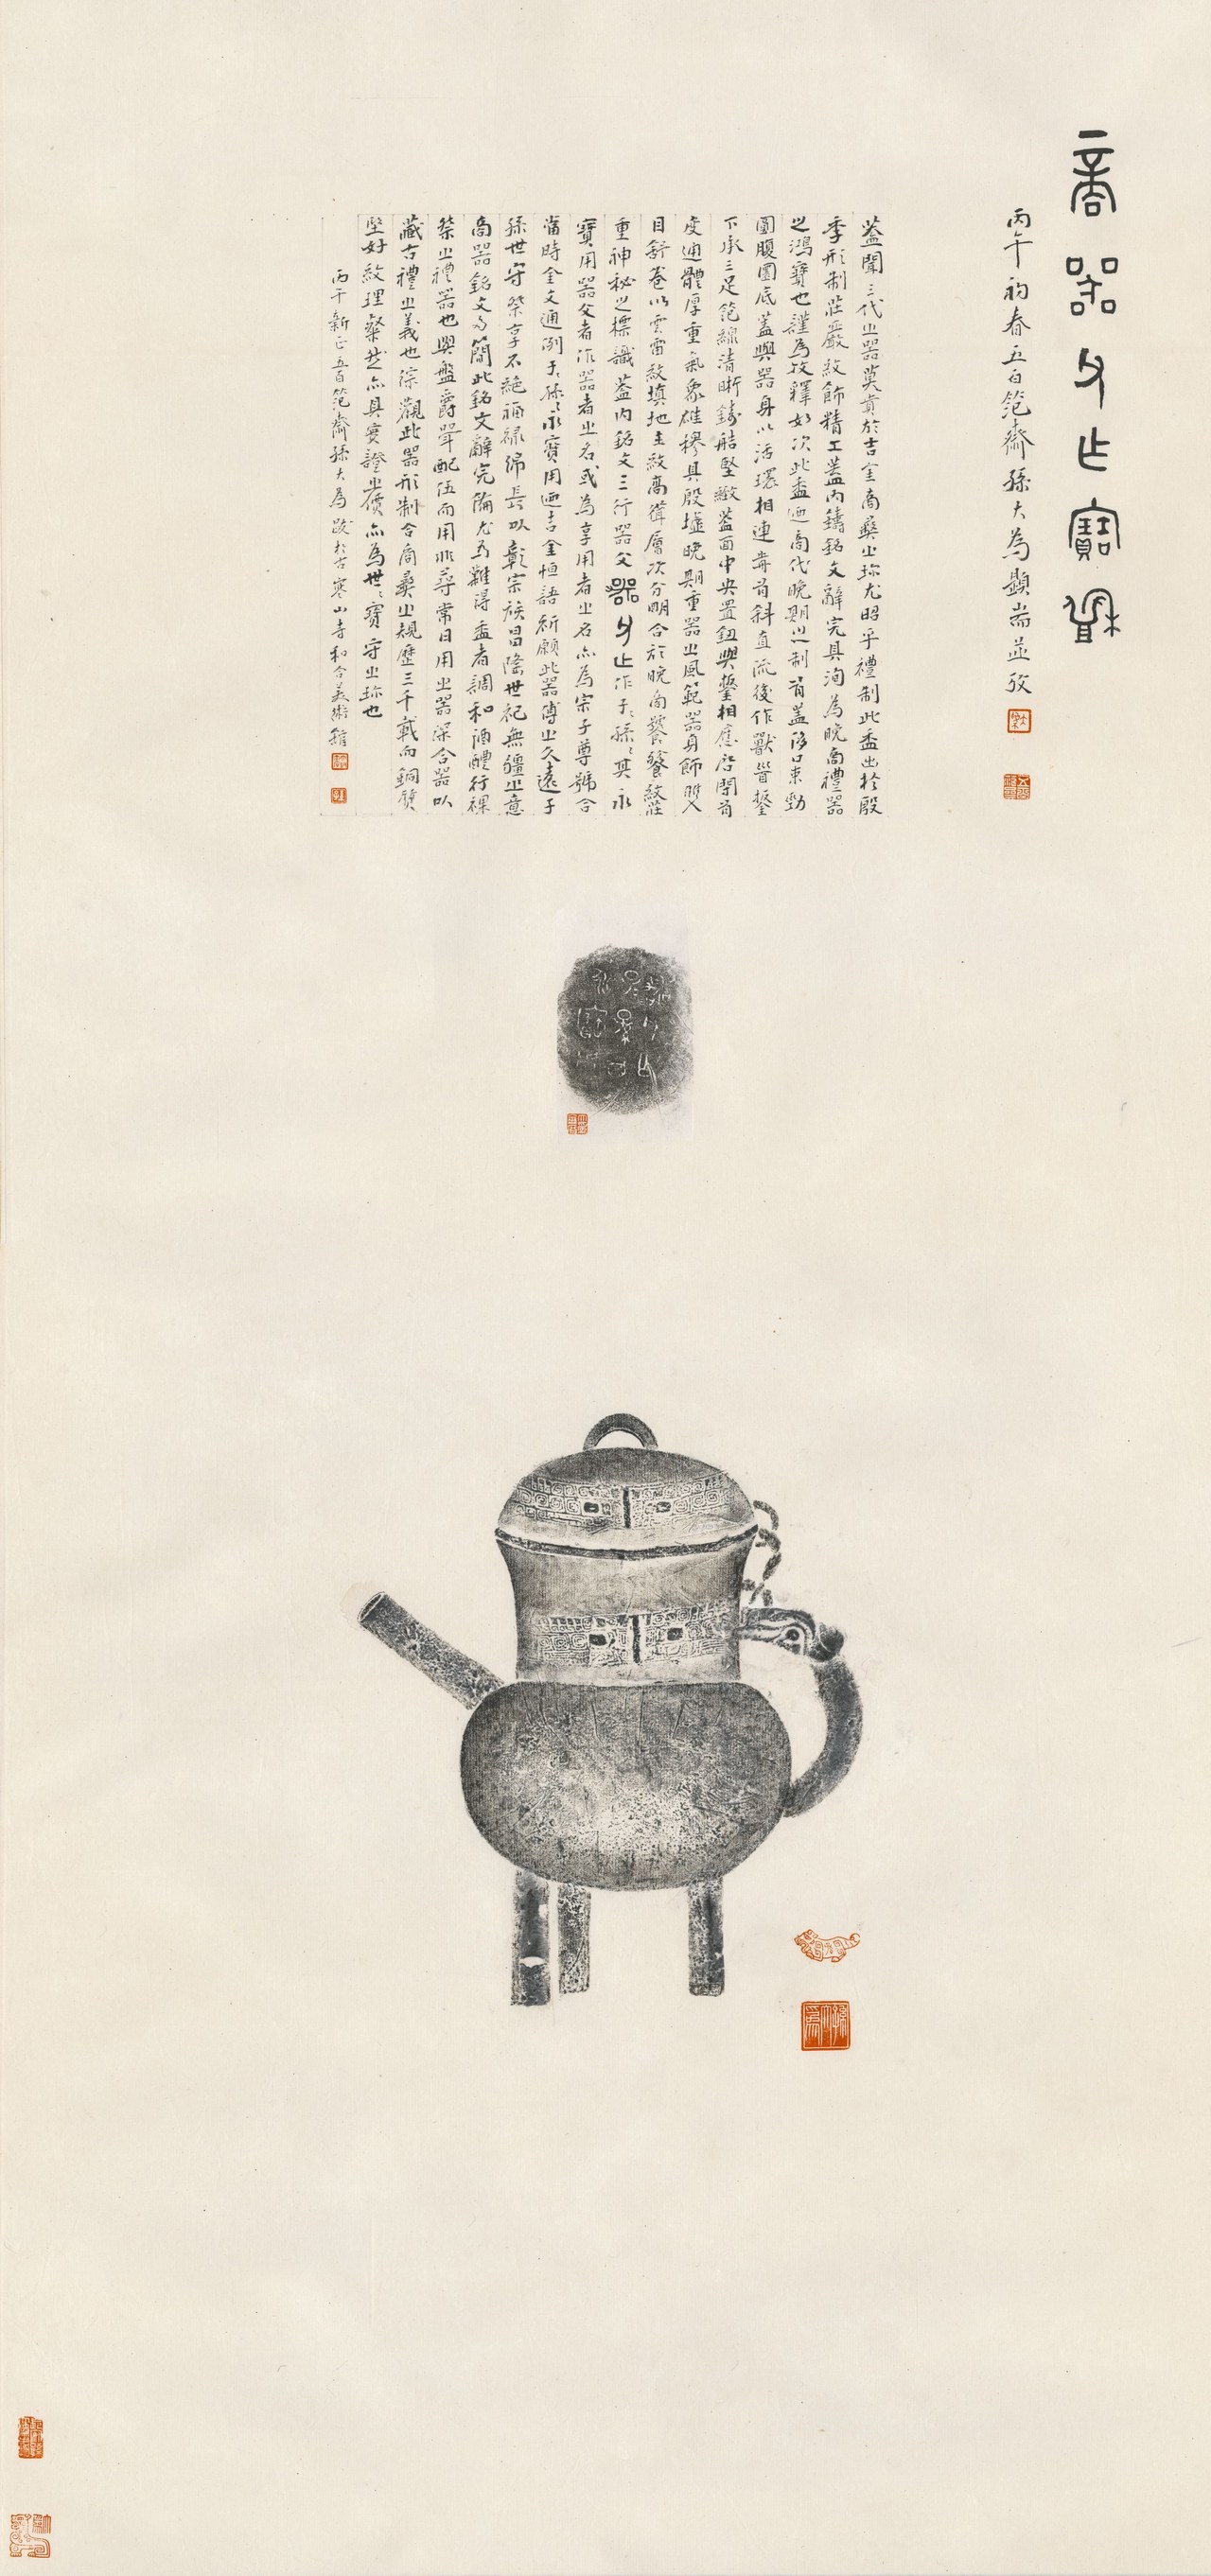 商器父乍寶盉
丙午初春五百笵齋孫大為題耑並攷
蓋聞三代之器莫貴於吉金商彝之珍尤昭乎禮制此盉出於殷
季形制莊嚴紋飾精工蓋內鑄銘文辭完具洵為晚商禮器
之鴻寶也謹為攷釋如次此盉迺商代晚期之制有蓋侈口束頸
圓腹圜底蓋與器身以活環相連耑首斜直流後作獸首鋬
下承三足笵線清晰鑄結堅緻蓋面中央置鈕與鋬相應啓閉有
度通體厚重氣象雄穆具殷墟晚期重器之風範器身飾
目舒卷以雲雷紋填地主紋高聳層次分明合於晚商饕餮紋莊
重神秘之標識蓋內銘文三行器父器父乍作子〻孫〻其永
寶用器父者作器者之名或為享用者之名亦為宗子尊號合
當時金文通例子〻孫〻永寶用迺吉金恒語祈願此器傳之久遠子
孫世守祭享不絕福祿綿長以彰宗族昌隆世祀無疆之意
商器銘文多簡此銘文辭完備尤為難得盉者調和酒醴行祼
祭之禮器也與盤爵斝配伍而用非尋常日用之器深合器以
藏古禮之義也綜觀此器形制合商彝之規歷三千載而銅質
堅好紋理粲然亦具實證之價亦為世〻寶守之珍也
丙午新正五百笵齋孫大為跋於古寒山寺和合美術館